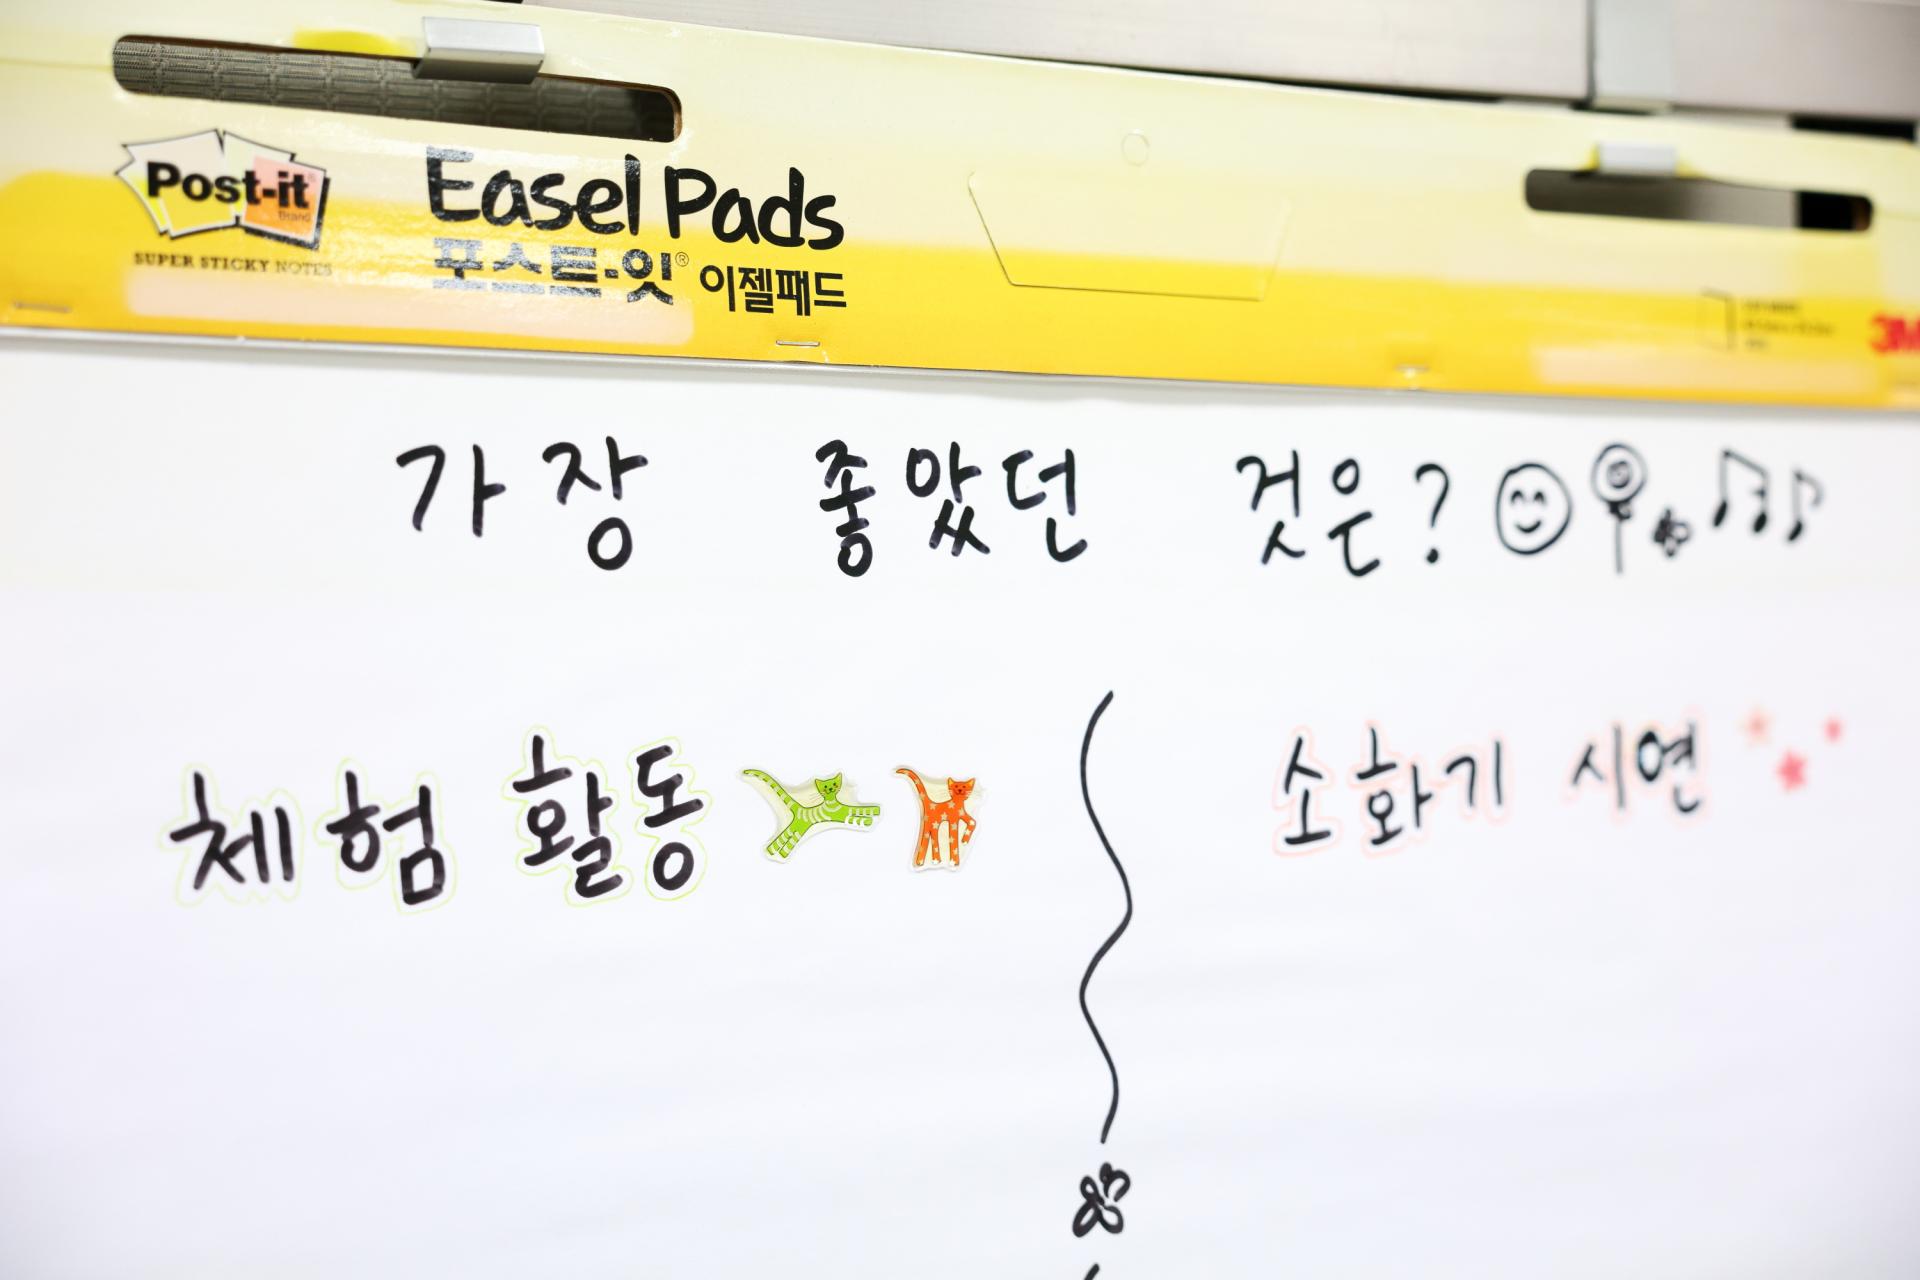 Post-it
Brand
SUPER STICKY NOTES
Easel Pads
포스트-잇® 이젤패드
3M
가장 좋았던 것은?
체험 활동
소화기 시연